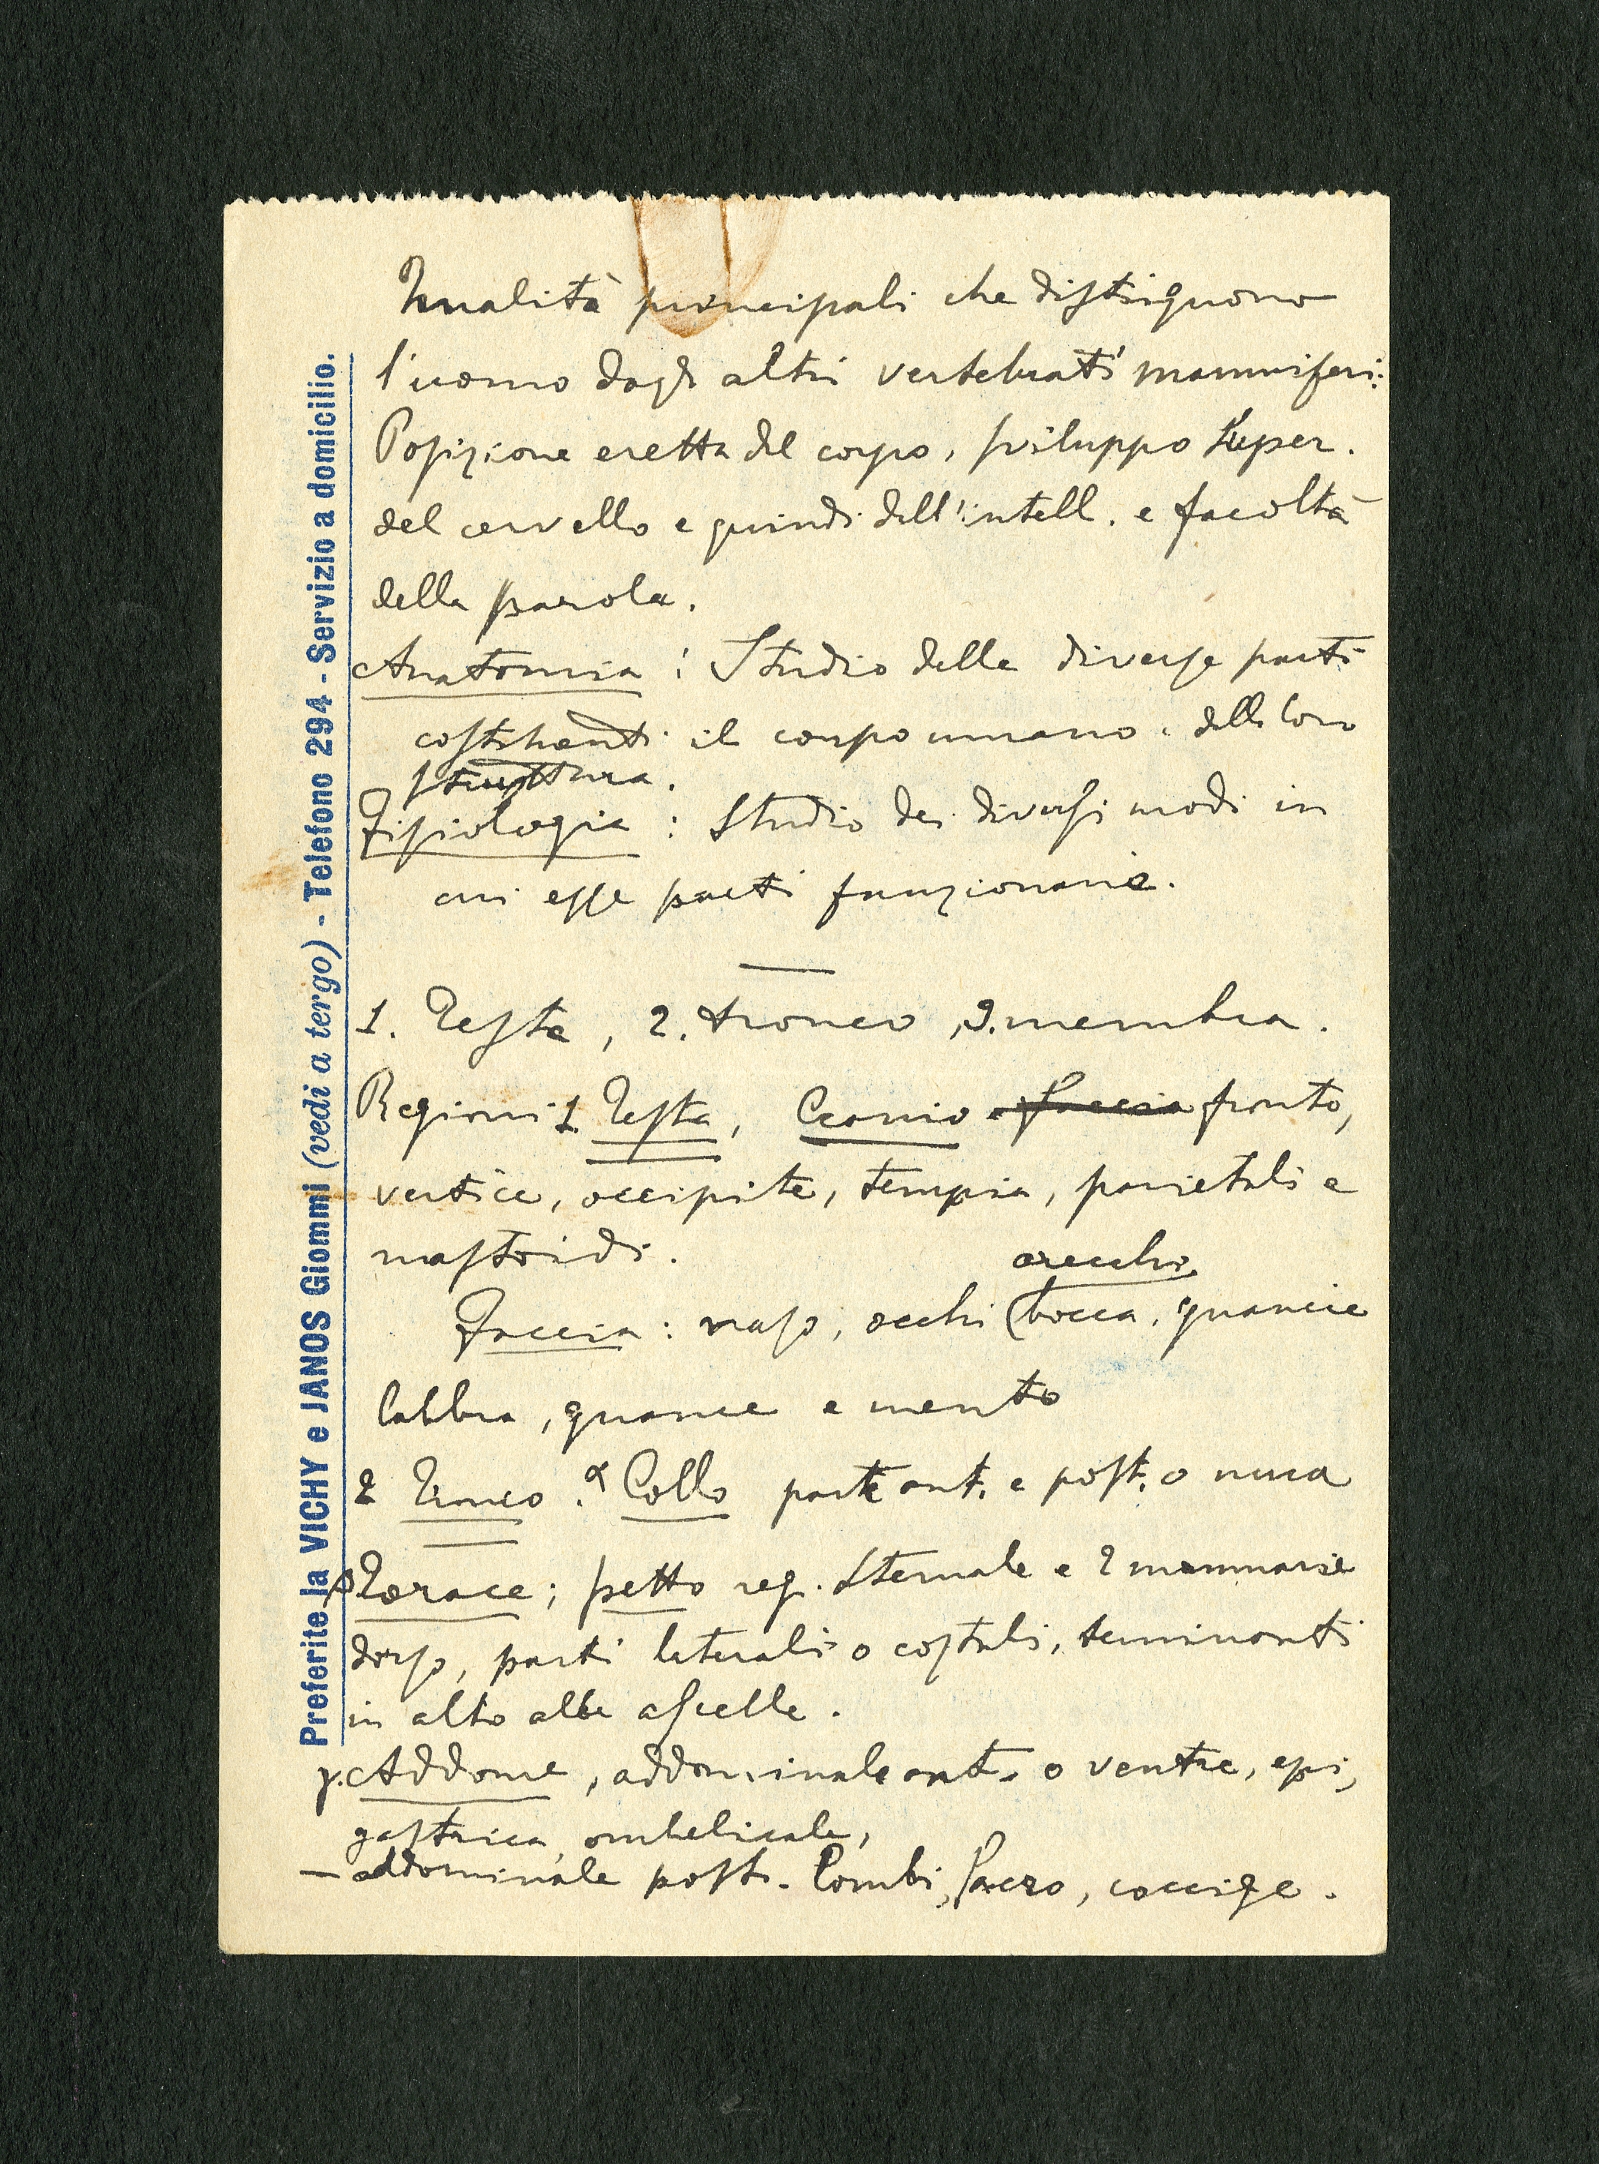 Qualità principali che distinguono
l'uomo dagli altri vertebrati mammiferi:
Posizione eretta del corpo, sviluppo super.
del cervello e quindi dell'intell. e facoltà
della parola.
Anatomia: Studio delle diverse parti
costituenti il corpo umano e della loro
struttura.
Fisiologia: Studio dei diversi modi in
cui esse parti funzionano.
1. Testa, 2. tronco, 3. membra.
Regioni 1 Testa, Cranio e faccia fronte,
vertice, occipite, tempia, parietali e
mastoidi.
orecchi,
Faccia: naso, occhi (bocca, guancie
labbra, guance e mento
2 Tronco. α Collo parte ant. e post. o nuca
β Torace; petto reg. sternale e 2 mammarie
dorso, parti laterali o costali, terminanti
in alto alle ascelle.
γ. Addome, addominale ant. o ventre, epi,
gastrica, ombelicale,
— addominale post. Lombi, Sacro, coccige.
Preferite la VICHY e JANOS Giommi (vedi a tergo) - Telefono 294 - Servizio a domicilio.